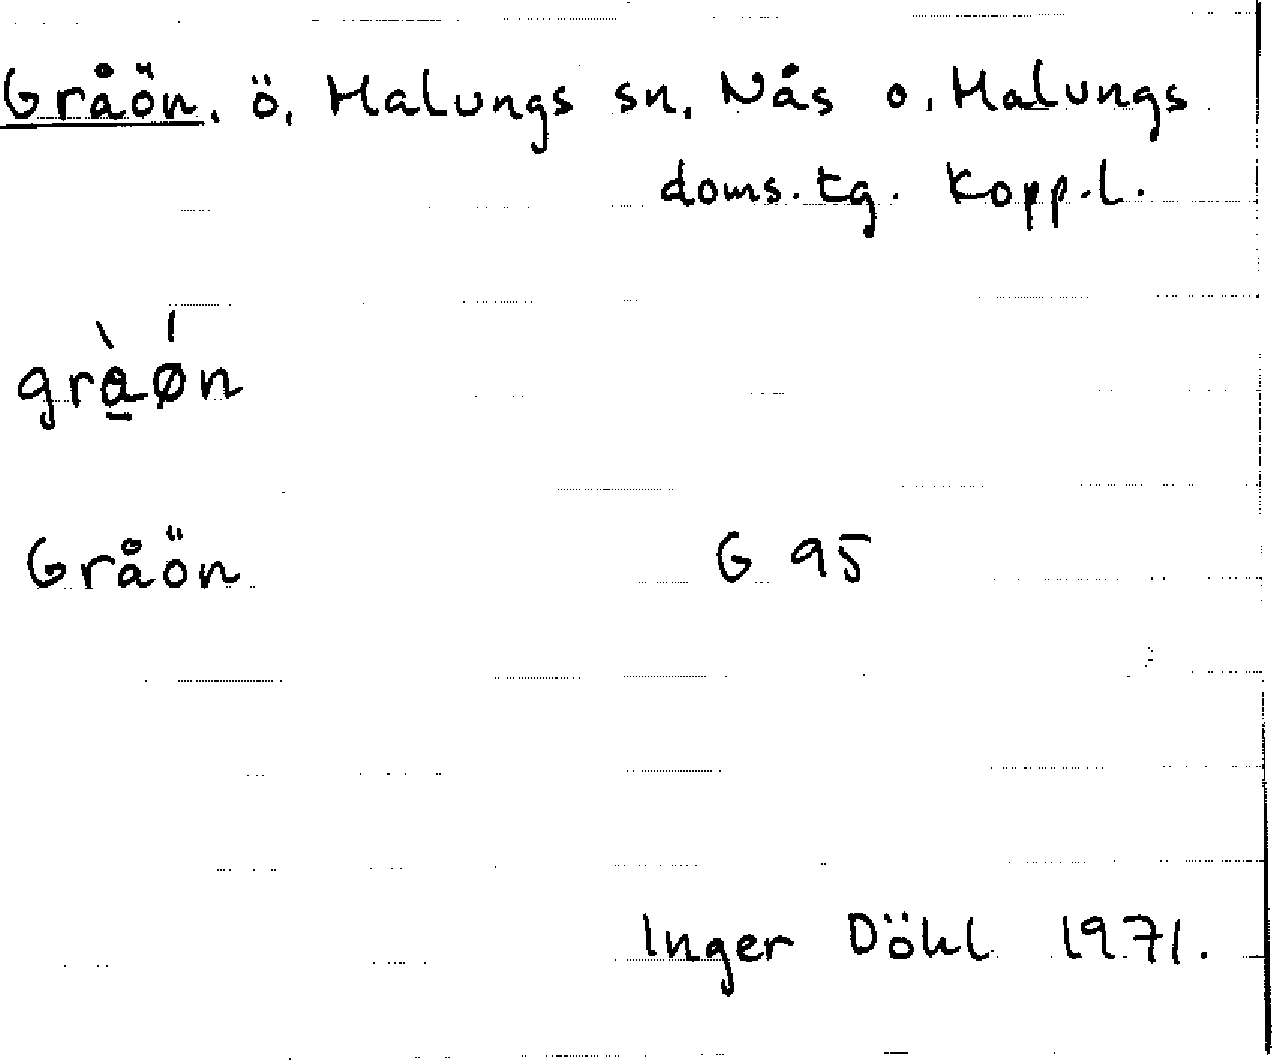 Gråön, ö, Malungs sn, Nås o. Malungs
doms.tg. Kopp.l.
gràøn
Gråön G 95
Inger Döhl 1971.